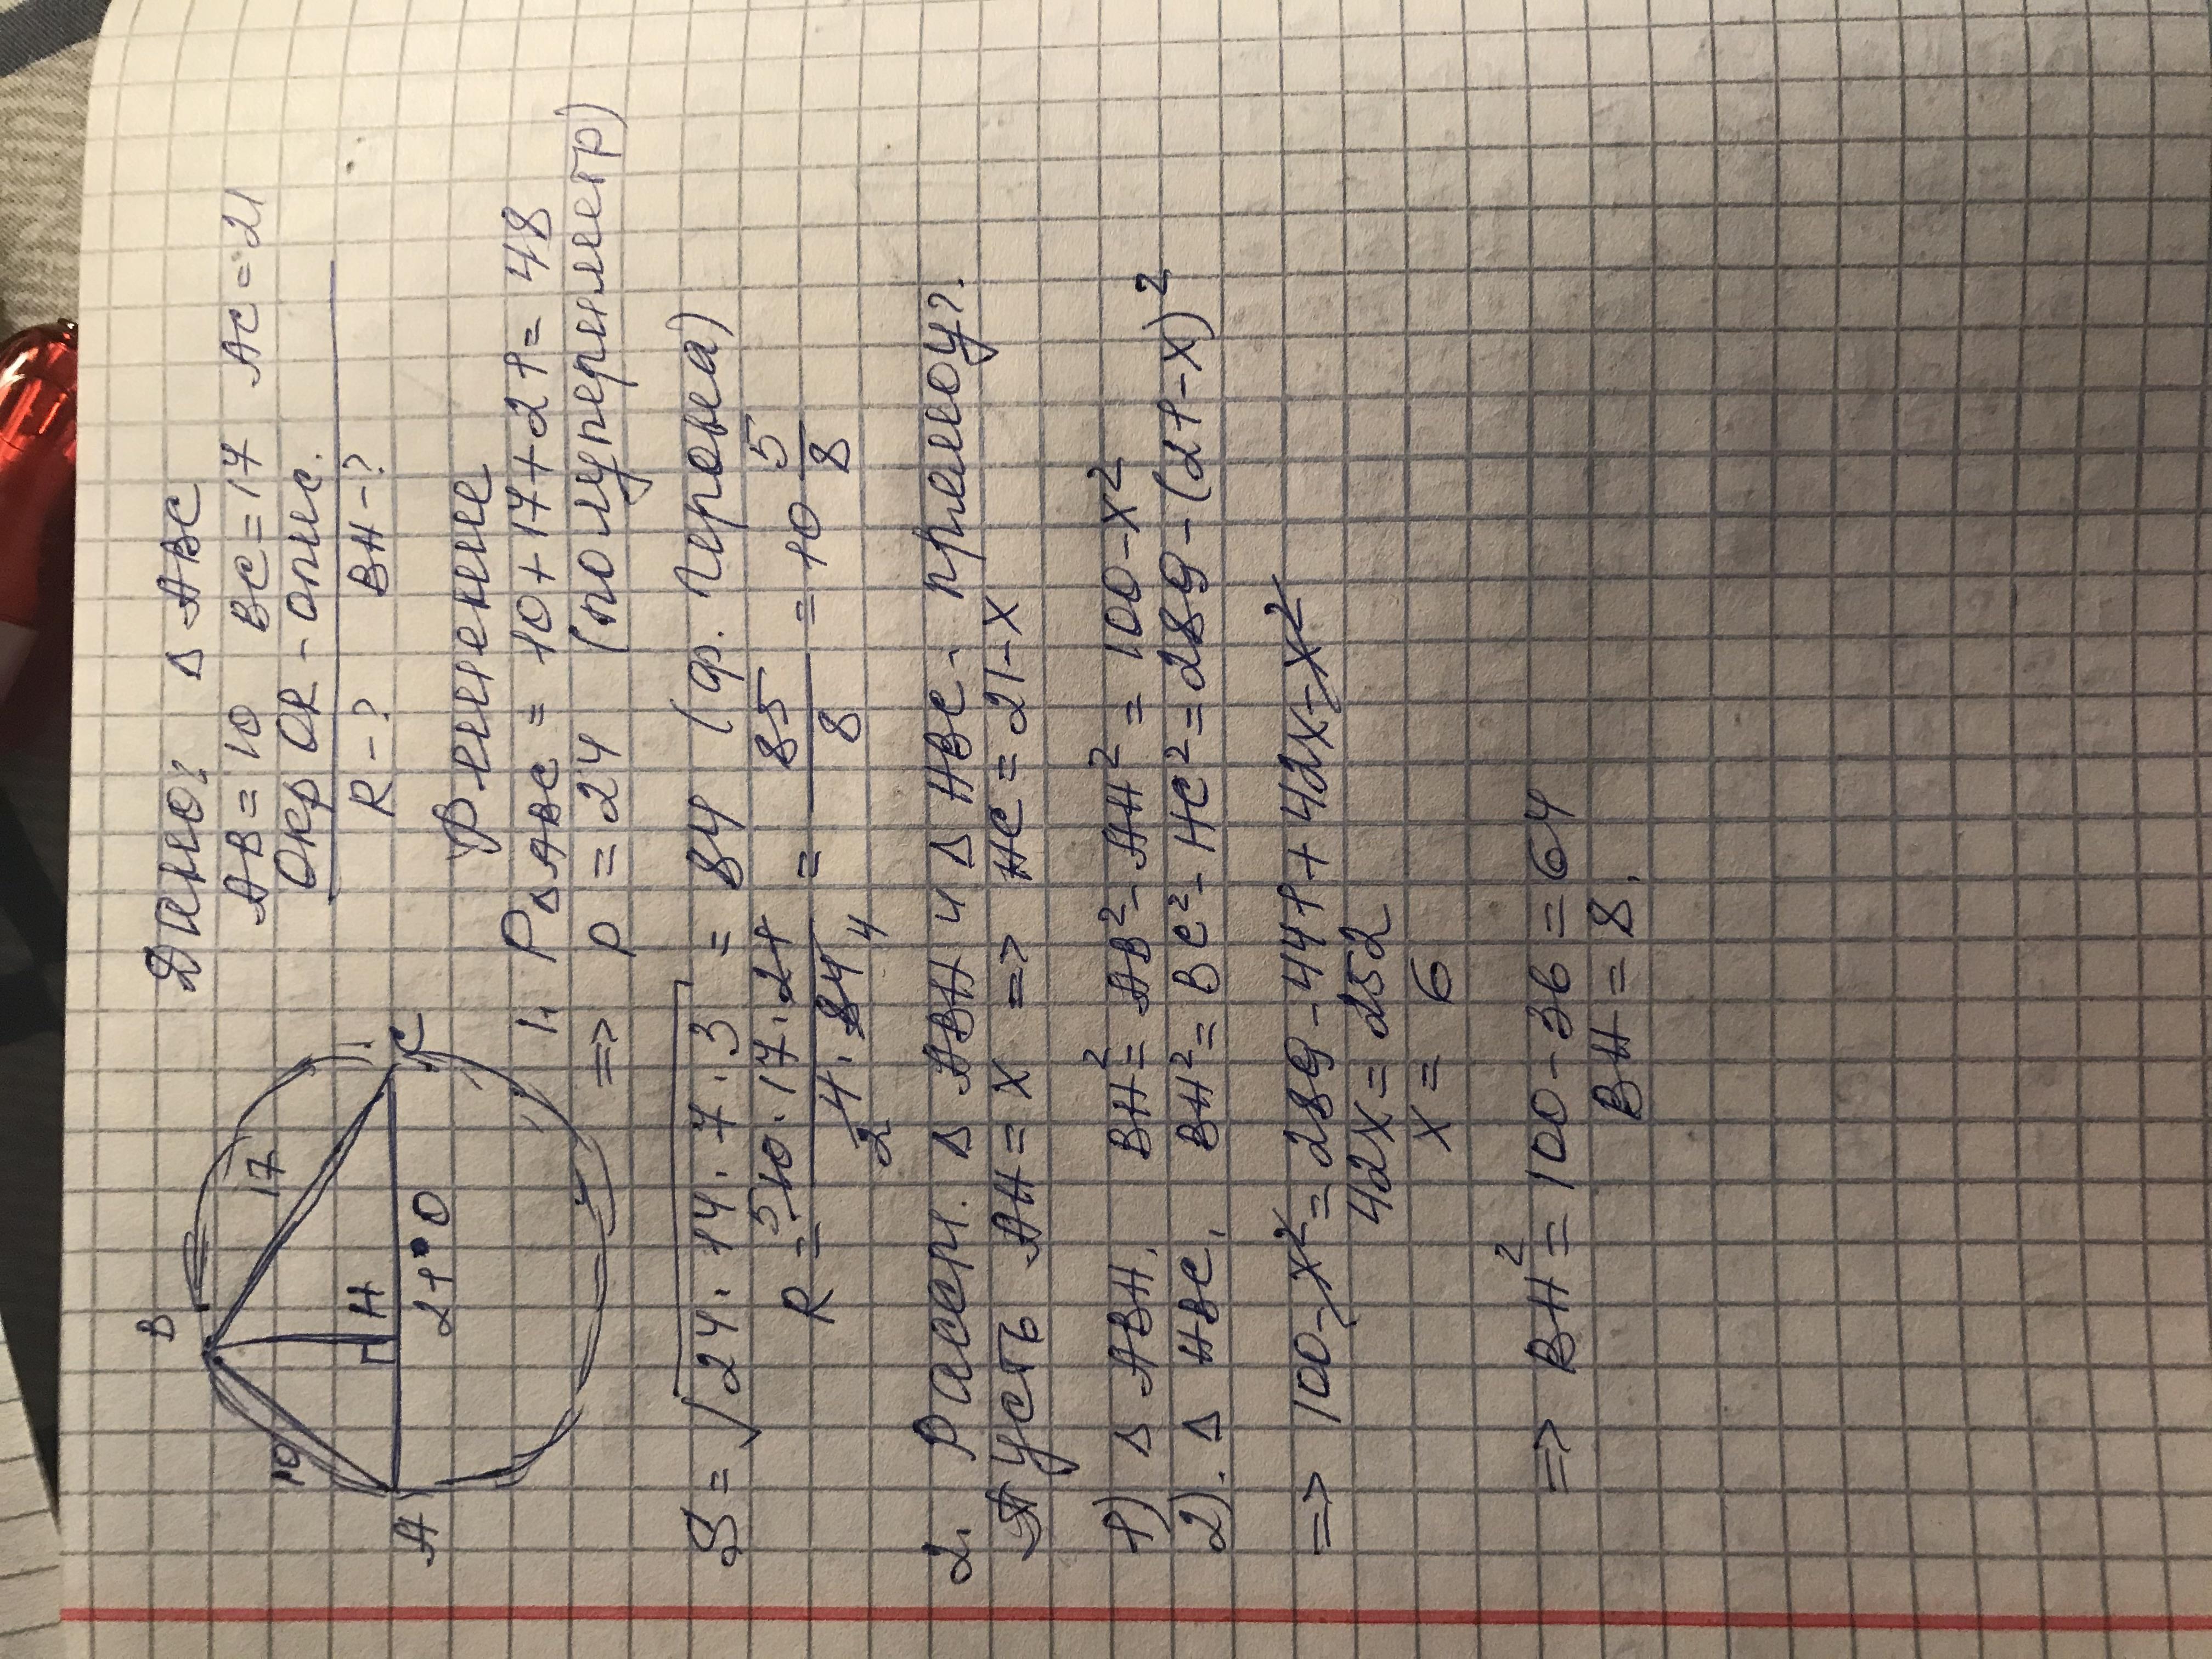 Дано: Δ ABC
AB = 10 BC = 17 AC = 21
Окр OR - опис.
R - ? BH - ?
B
17
10
H
A
C
21
O
Решение
1. P ΔABC = 10 + 17 + 21 = 48
=> p = 24 (полупериметр)
S = √24 · 14 · 7 · 3 = 84 (ф. Герона)
R = 10 · 17 · 21 / 4 · 84 = 85/8 = 10 5/8
5
2 4
2. Рассм. Δ ABH и Δ HBC. прямоу?.
Пусть AH = x => HC = 21 - x
1) Δ ABH. BH² = AB² - AH² = 100 - x²
2). Δ HBC. BH² = BC² - HC² = 289 - (21 - x)²
=> 100 - x² = 289 - 441 + 42x - x²
42x = 252
x = 6
=> BH² = 100 - 36 = 64
BH = 8.